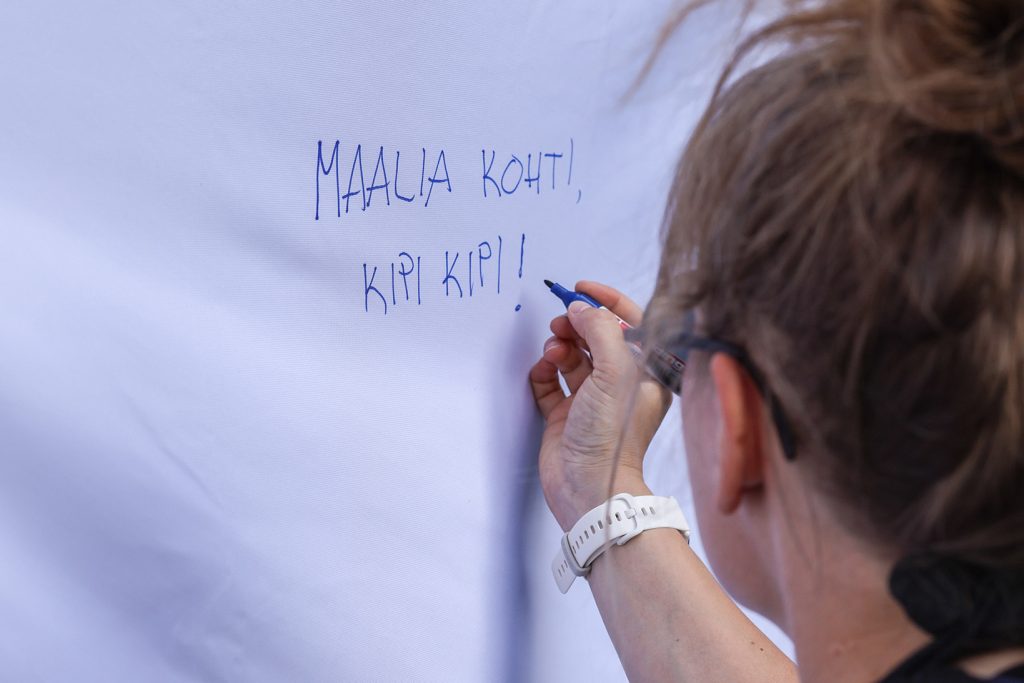 MAALIA KOHTI,
KIPI KIPI!